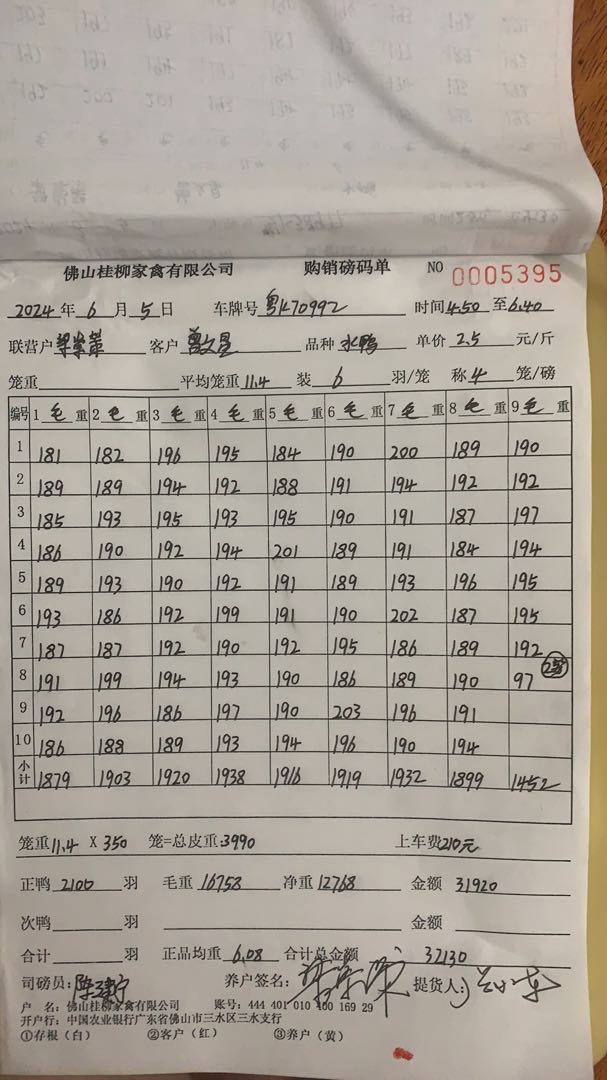 佛山桂柳家禽有限公司 购销磅码单 NO 0005395
2024年6月5日 车牌号粤K70992 时间4.50至6.40
联营户 客户曾文星 品种水鸭 单价2.5元/斤
笼重 平均笼重11.4 装6羽/笼 称4笼/磅
编号 1毛重 2毛重 3毛重 4毛重 5毛重 6毛重 7毛重 8毛重 9毛重
1 181 182 196 195 184 190 200 189 190
2 189 189 194 192 188 191 194 192 192
3 185 193 195 193 195 190 191 187 197
4 186 190 192 194 201 189 191 184 194
5 189 193 190 192 191 189 193 196 195
6 193 186 192 199 191 190 202 187 195
7 187 187 192 190 192 195 186 189 192
8 191 199 194 193 190 186 189 190 97 2笼
9 192 196 186 197 190 203 196 191
10 186 188 189 193 194 196 190 194
小计 1879 1903 1920 1938 1916 1919 1932 1899 1452
笼重11.4 X 350 笼=总皮重:3990 上车费210元
正鸭2100羽 毛重16758 净重12768 金额31920
次鸭 羽 金额
合计 羽 正品均重6.08 合计总金额32130
司磅员: 养户签名: 提货人:
户 名: 佛山桂柳家禽有限公司 账号: 444 401 010 400 169 29
开户行: 中国农业银行广东省佛山市三水区三水支行
①存根（白） ②客户（红） ③养户（黄）